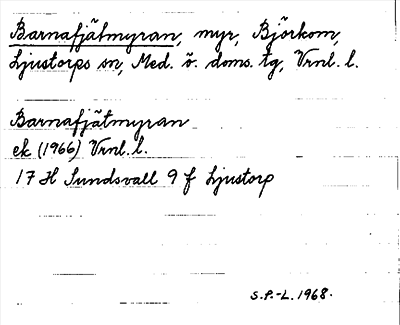 Barnafjätmyran, myr, Björkom,
Ljustorps sn, Med. ö. doms. tg, Vrnl. l.
Barnafjätmyran
ek (1966) Vrnl. l.
17 H Sundsvall 9 f Ljustorp
S.P.-L. 1968.